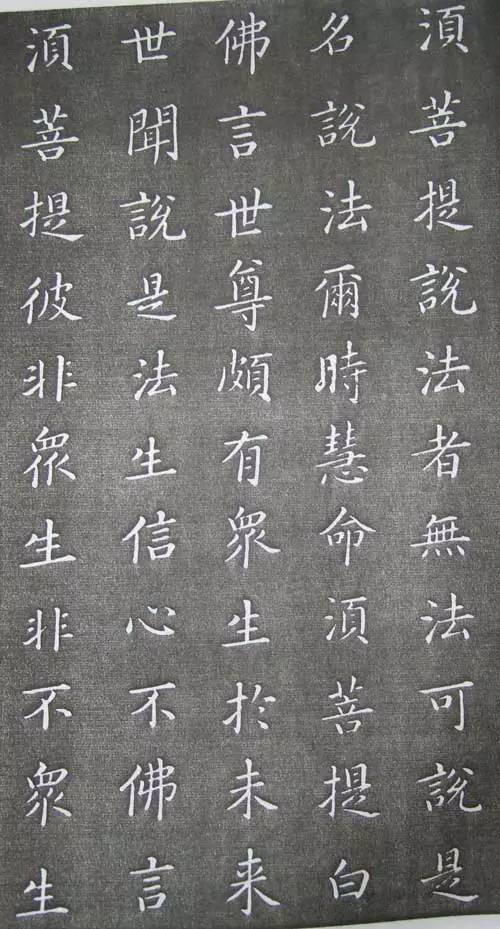 湏菩提說法者無法可說是
名說法爾時慧命湏菩提白
佛言世尊頗有眾生於未来
世聞說是法生信心不佛言
湏菩提彼非眾生非不眾生